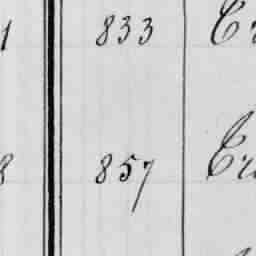 1 833 Cr
8 857 Cr